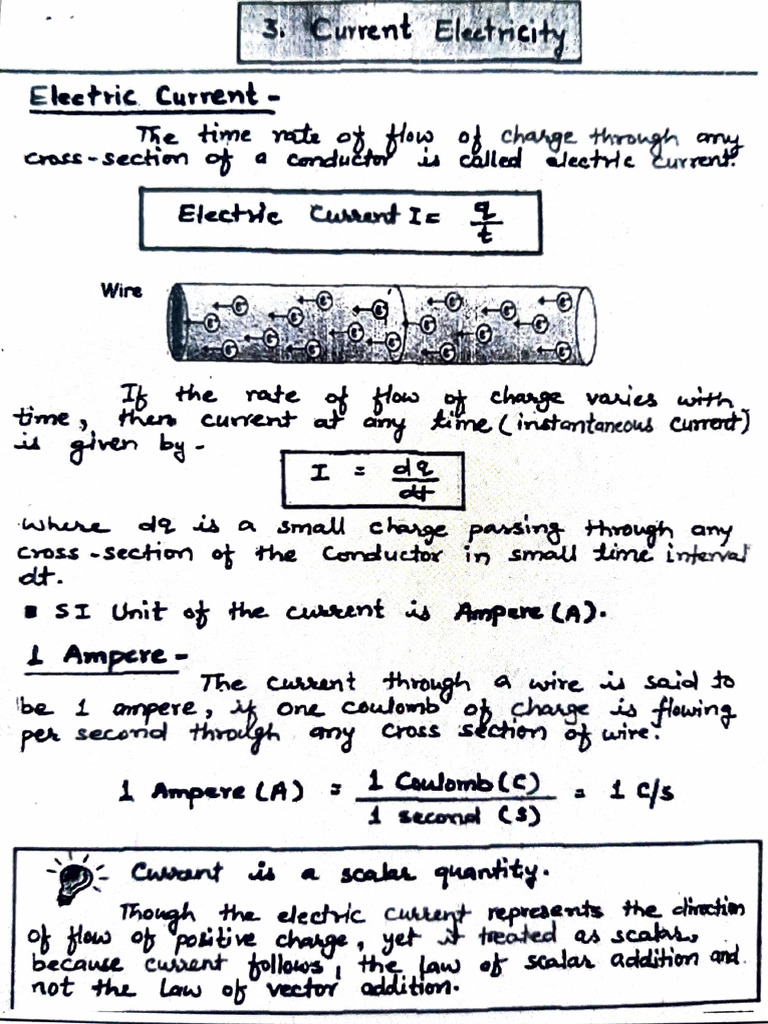 3. Current Electricity
Electric Current -
The time rate of flow of charge through any
cross-section of a conductor is called electric current.
Electric Current I = q/t
Wire
e⁻ e⁻ e⁻ e⁻ e⁻ e⁻ e⁻ e⁻ e⁻ e⁻ e⁻ e⁻ e⁻ e⁻ e⁻ e⁻ e⁻ e⁻
If the rate of flow of charge varies with
time, then current at any time (instantaneous current)
is given by -
I = dq/dt
where dq is a small charge passing through any
cross-section of the conductor in small time interval
dt.
▪ SI Unit of the current is Ampere (A).
1 Ampere -
The current through a wire is said to
be 1 ampere, if one coulomb of charge is flowing
per second through any cross section of wire.
1 Ampere (A) = 1 Coulomb (C)/1 second (s) = 1 C/s
Current is a scalar quantity.
Though the electric current represents the direction
of flow of positive charge, yet it treated as scalar,
because current follows, the law of scalar addition and
not the law of vector addition.